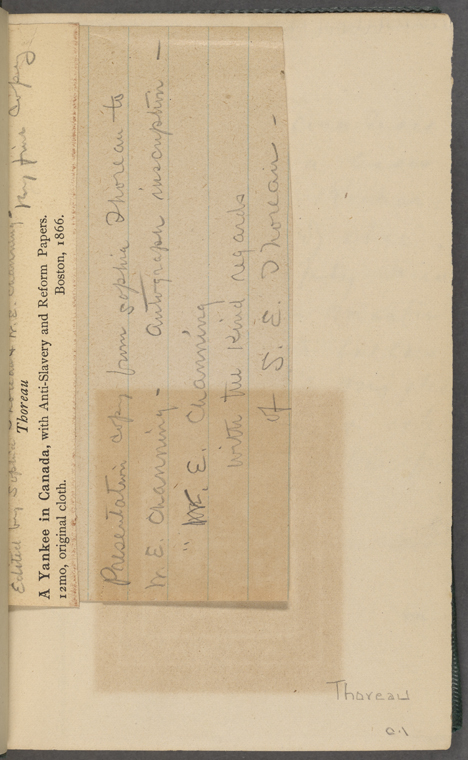 Edited by Sophia Thoreau & W. E. Channing - Very fine copy
Thoreau
A Yankee in Canada, with Anti-Slavery and Reform Papers.
12mo, original cloth. Boston, 1866.
Presentation copy from Sophia Thoreau to
W. E. Channing - Autograph inscription -
" W. E. Channing
with the kind regards
of S. E. Thoreau -
Thoreau